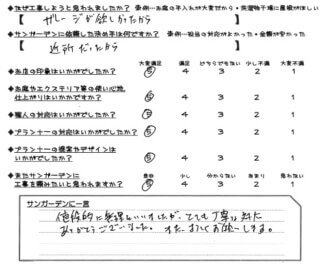 ◆なぜ工事しようと思われましたか? 参例…お庭の手入れが大変だから・洗濯物干場に屋根がほしい
【 ガレージが欲しかったから 】
◆サンガーデンに依頼した決め手は何ですか? 参例…担当の対応がよかった・金額が安かった
【 近所だったから 】
大変満足 満足 どちらでもない 少し不満 大変不満
◆お店の印象はいかがでしたか? 5 4 3 2 1
◆お庭やエクステリア等の使い心地、
仕上がりはいかがですか? 5 4 3 2 1
◆職人の対応はいかがでしたか? 5 4 3 2 1
◆プランナーの対応はいかがでしたか? 5 4 3 2 1
◆プランナーの提案やデザインは
いかがでしたか? 5 4 3 2 1
◆またサンガーデンに 是非 少し 分からない あまり 思わない
工事を頼みたいと思われますか? 5 4 3 2 1
サンガーデンに一言
値段的に無理をいいましたが、とても丁寧な対応
ありがとうございました。またよろしくお願いします。